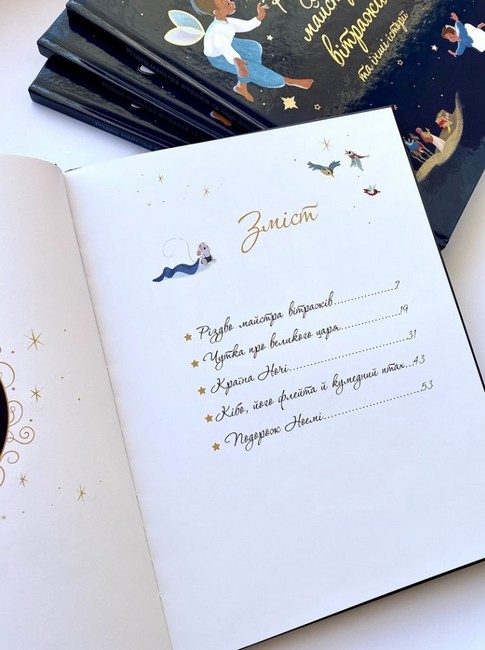 майстра
вітражів
та інші історії
Зміст
Різдво майстра вітражів..............7
Чутка про великого царя..............19
Країна Ночі..............................31
Кібо, його флейта й кумедний птах...43
Подорож Ноемі.........................53